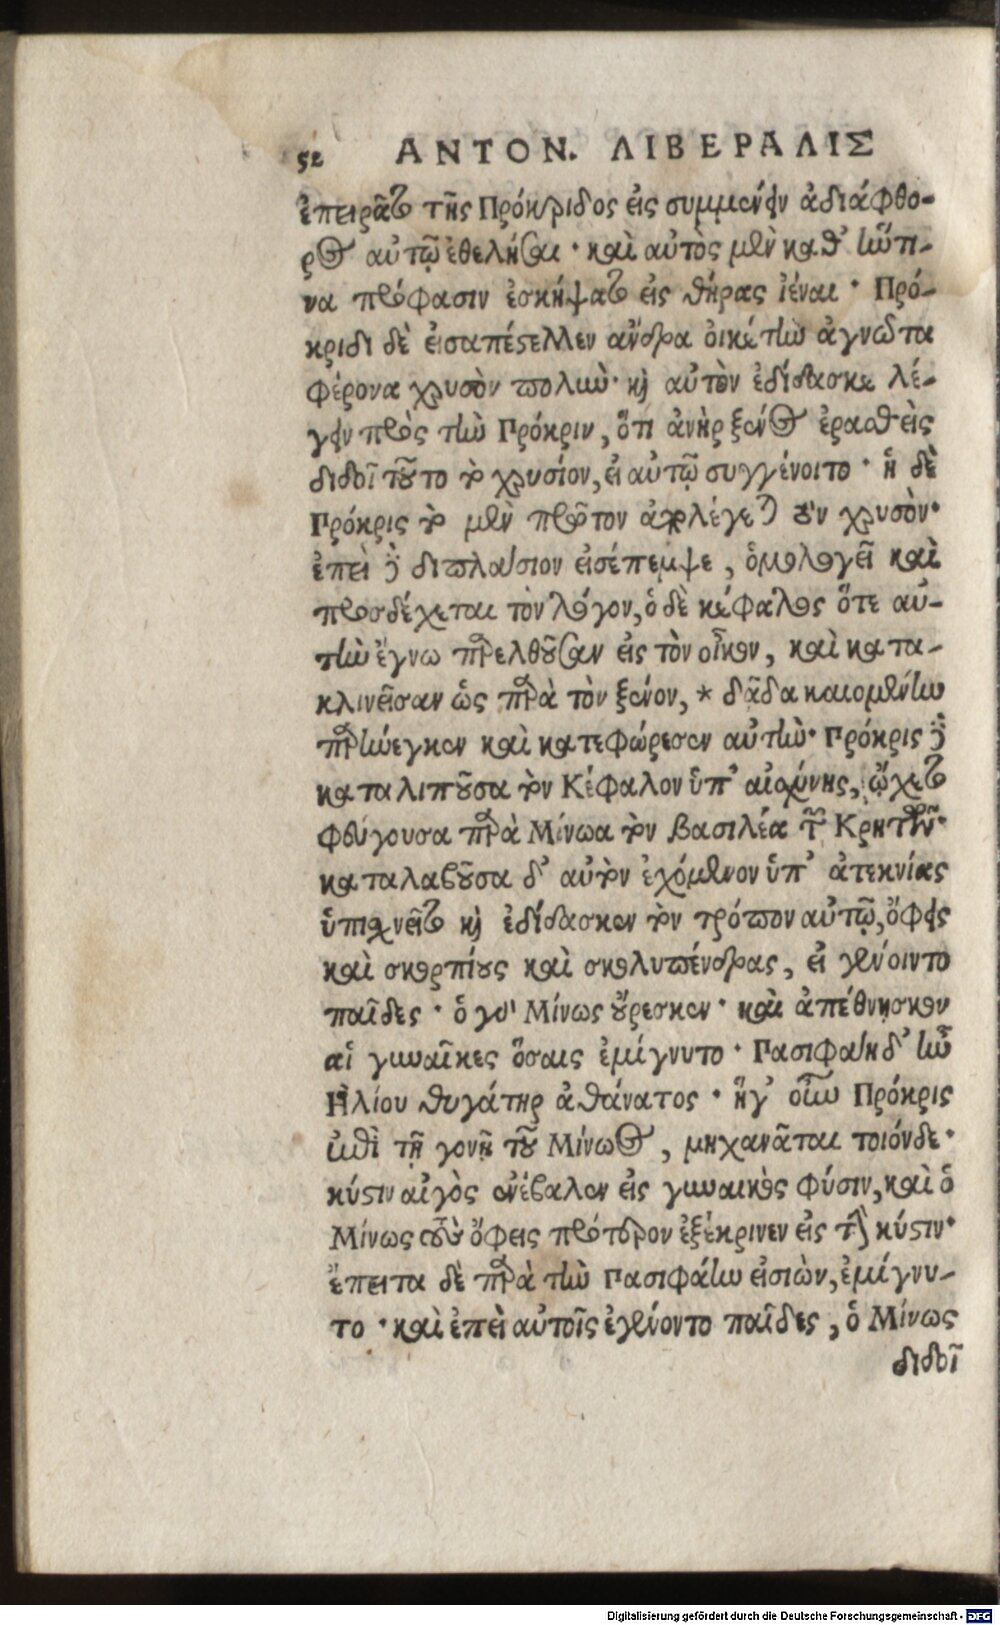 52 ΑΝΤΟΝ. ΛΙΒΕΡΑΛΙΣ
ἐπειρᾶτο τῆς Πρόκριδος εἰς συμμένειν ἀδιάφθο-
ρος αὐτῷ ἐθελήσαι· καὶ αὐτὸς μὲν καθ' ἥντι-
να πρόφασιν ἐσκήψατο εἰς θήρας ἰέναι· Πρό-
κριδι δὲ εἰσαπέστελλεν ἄνδρα οἰκέτην ἀγνῶτα
φέροντα χρυσὸν πολὺν· καὶ αὐτὸν ἐδίδασκε λέ-
γειν πρὸς τὴν Πρόκριν, ὅτι ἀνὴρ ξένος ἐρασθεὶς
διδοῖ τοῦτο τὸ χρυσίον, εἰ αὐτῷ συγγένοιτο· ἡ δὲ
Πρόκρις τὸ μὲν πρῶτον ἀπολέγεται τὸν χρυσὸν·
ἐπεὶ δὲ διπλάσιον εἰσέπεμψε, ὁμολογεῖ καὶ
προσδέχεται τὸν λόγον, ὁ δὲ κέφαλος ὅτε αὐ-
τὴν ἔγνω παρελθοῦσαν εἰς τὸν οἶκον, καὶ κατα-
κλινεῖσαν ὡς παρὰ τὸν ξένον, * δᾶδα καιομένην
παρήνεγκεν καὶ κατεφώρεσεν αὐτὴν· Πρόκρις δὲ
καταλιποῦσα τὸν Κέφαλον ὑπ' αἰσχύνης, ᾤχετο
φεύγουσα παρὰ Μίνωα τὸν βασιλέα τῶν Κρητῶν·
καταλαβοῦσα δ' αὐτὸν ἐχόμενον ὑπ' ἀτεκνίας
ὑπισχνεῖτο καὶ ἐδίδασκεν τὸν τρόπον αὐτῷ, ὄφεις
καὶ σκορπίους καὶ σκολυπένδρας, εἰ γένοιντο
παῖδες· ὁ γὰρ Μίνως οὔρεσκεν· καὶ ἀπέθνησκον
αἱ γυναῖκες ὅσαις ἐμίγνυτο· Πασιφάη δ' ἦν
Ἡλίου θυγάτηρ ἀθάνατος· ἥγ' οὖν Πρόκρις
ἐπὶ τῇ γονῇ τοῦ Μίνωος, μηχανᾶται τοιόνδε·
κύστιν αἰγὸς ἐνέβαλεν εἰς γυναικὸς φύσιν, καὶ ὁ
Μίνως τοὺς ὄφεις πρότερον ἐξέκρινεν εἰς τὴν κύστιν·
ἔπειτα δὲ παρὰ τὴν Πασιφάην εἰσιὼν, ἐμίγνυ-
το· καὶ ἐπεὶ αὐτοῖς ἐγένοντο παῖδες, ὁ Μίνως
διδοῖ
Digitalisierung gefördert durch die Deutsche Forschungsgemeinschaft - DFG